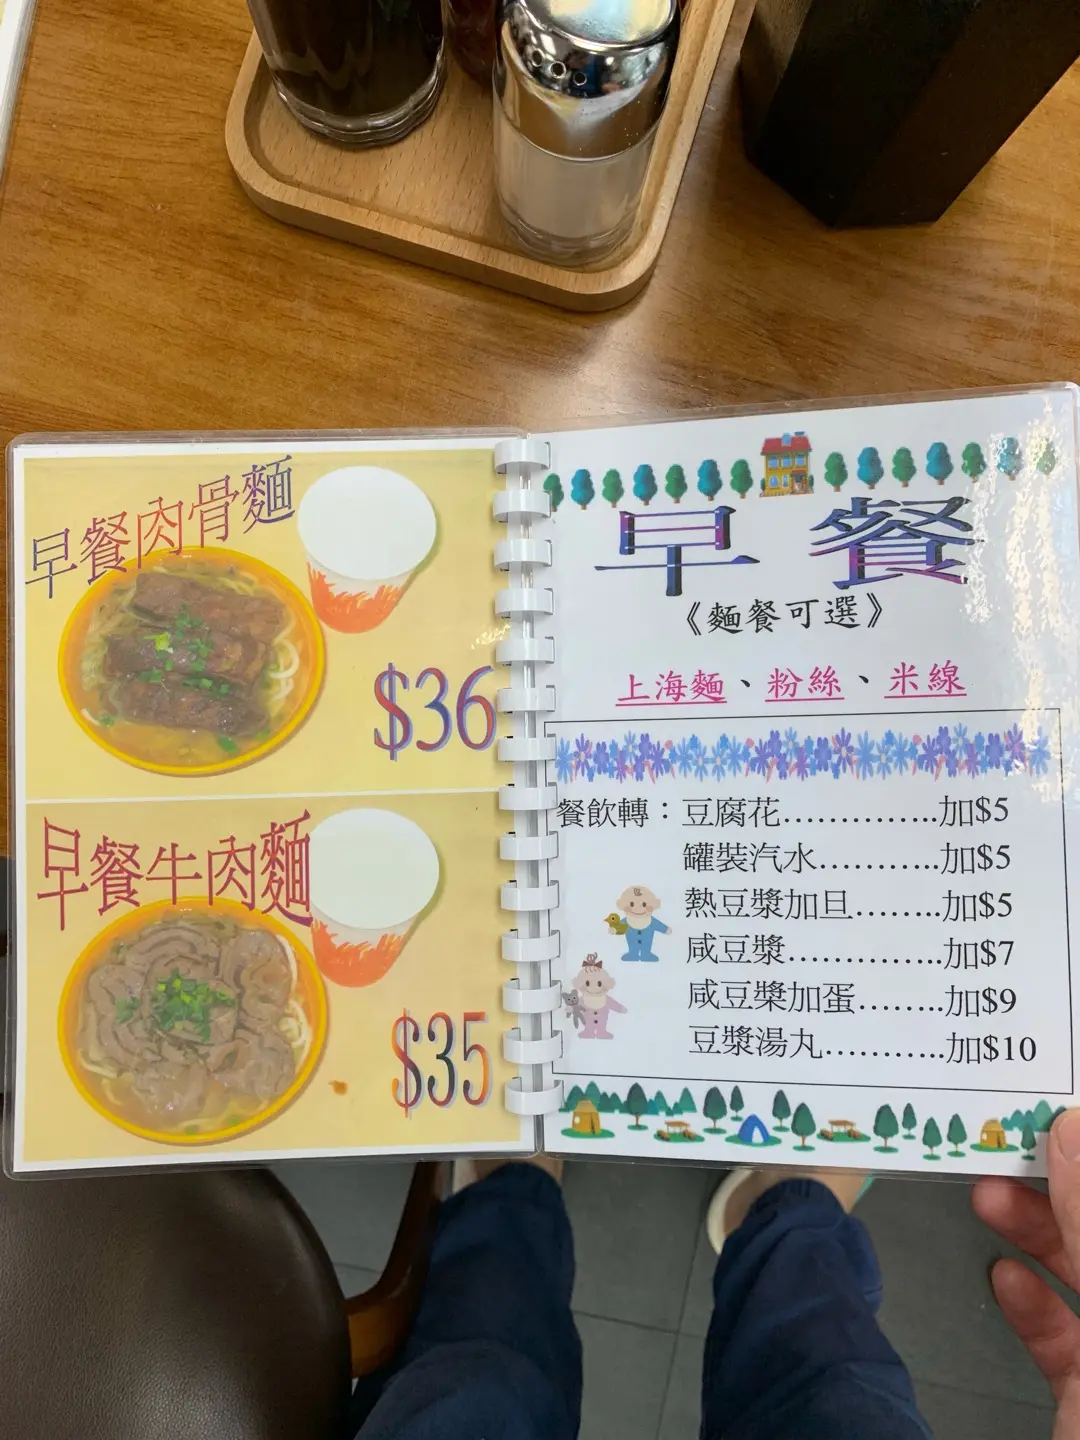 早餐肉骨麵
$36
早餐牛肉麵
$35
早餐
《麵餐可選》
上海麵、粉絲、米線
餐飲轉：豆腐花..............加$5
罐裝汽水...........加$5
熱豆漿加旦........加$5
咸豆漿..............加$7
咸豆漿加蛋.......加$9
豆漿湯丸...........加$10